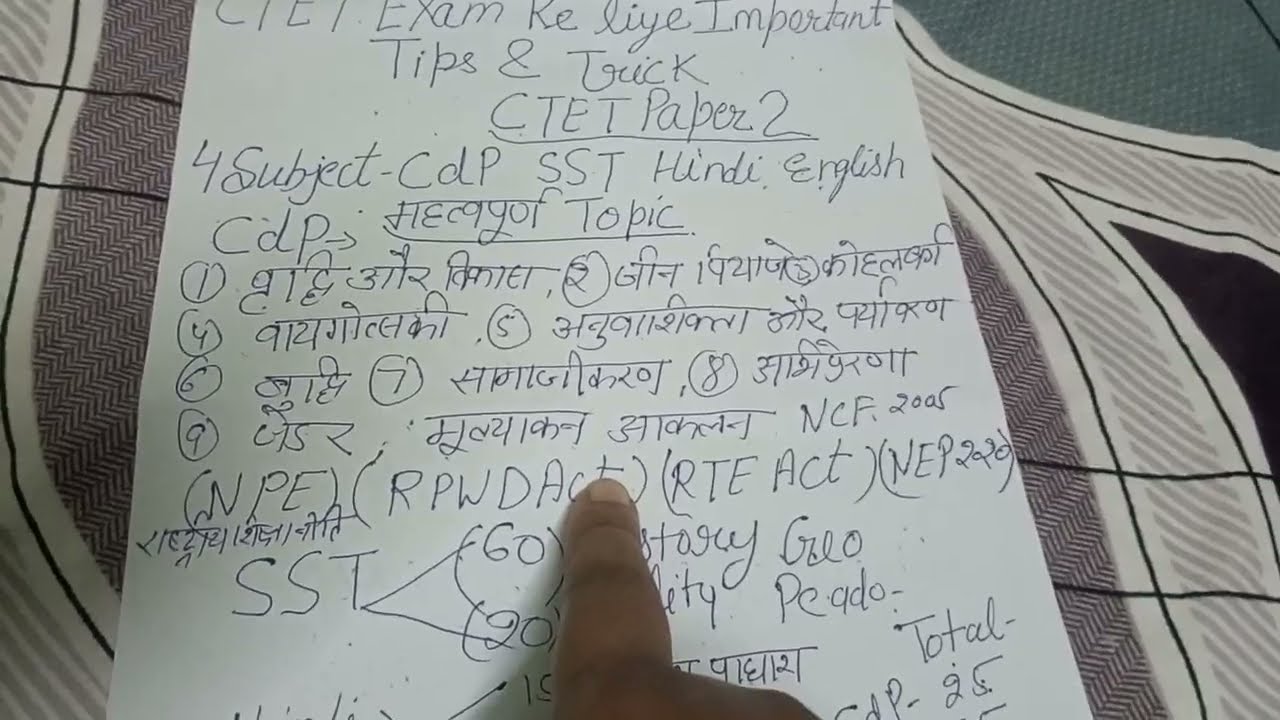 CTET Exam Ke liye Important
Tips & Trick
CTET Paper 2
4 Subject - CdP SST Hindi English
CdP → महत्वपूर्ण Topic
① वृद्धि और विकास, ② जीन पियाजे ③ कोहलबर्ग
④ वायगोत्सकी, ⑤ अनुवाशिकता और पर्यावरण
⑥ बुद्धि ⑦ सामाजीकरण, ⑧ अभिप्रेरणा
⑨ जैंडर, मूल्याकन आकलन NCF. 2005
(NPE) (RPWD Act) (RTE Act) (NEP 2020)
राष्ट्रीय शिक्षा नीति
SST (60) Geo
(20) Peado-
Total-
CdP- 25